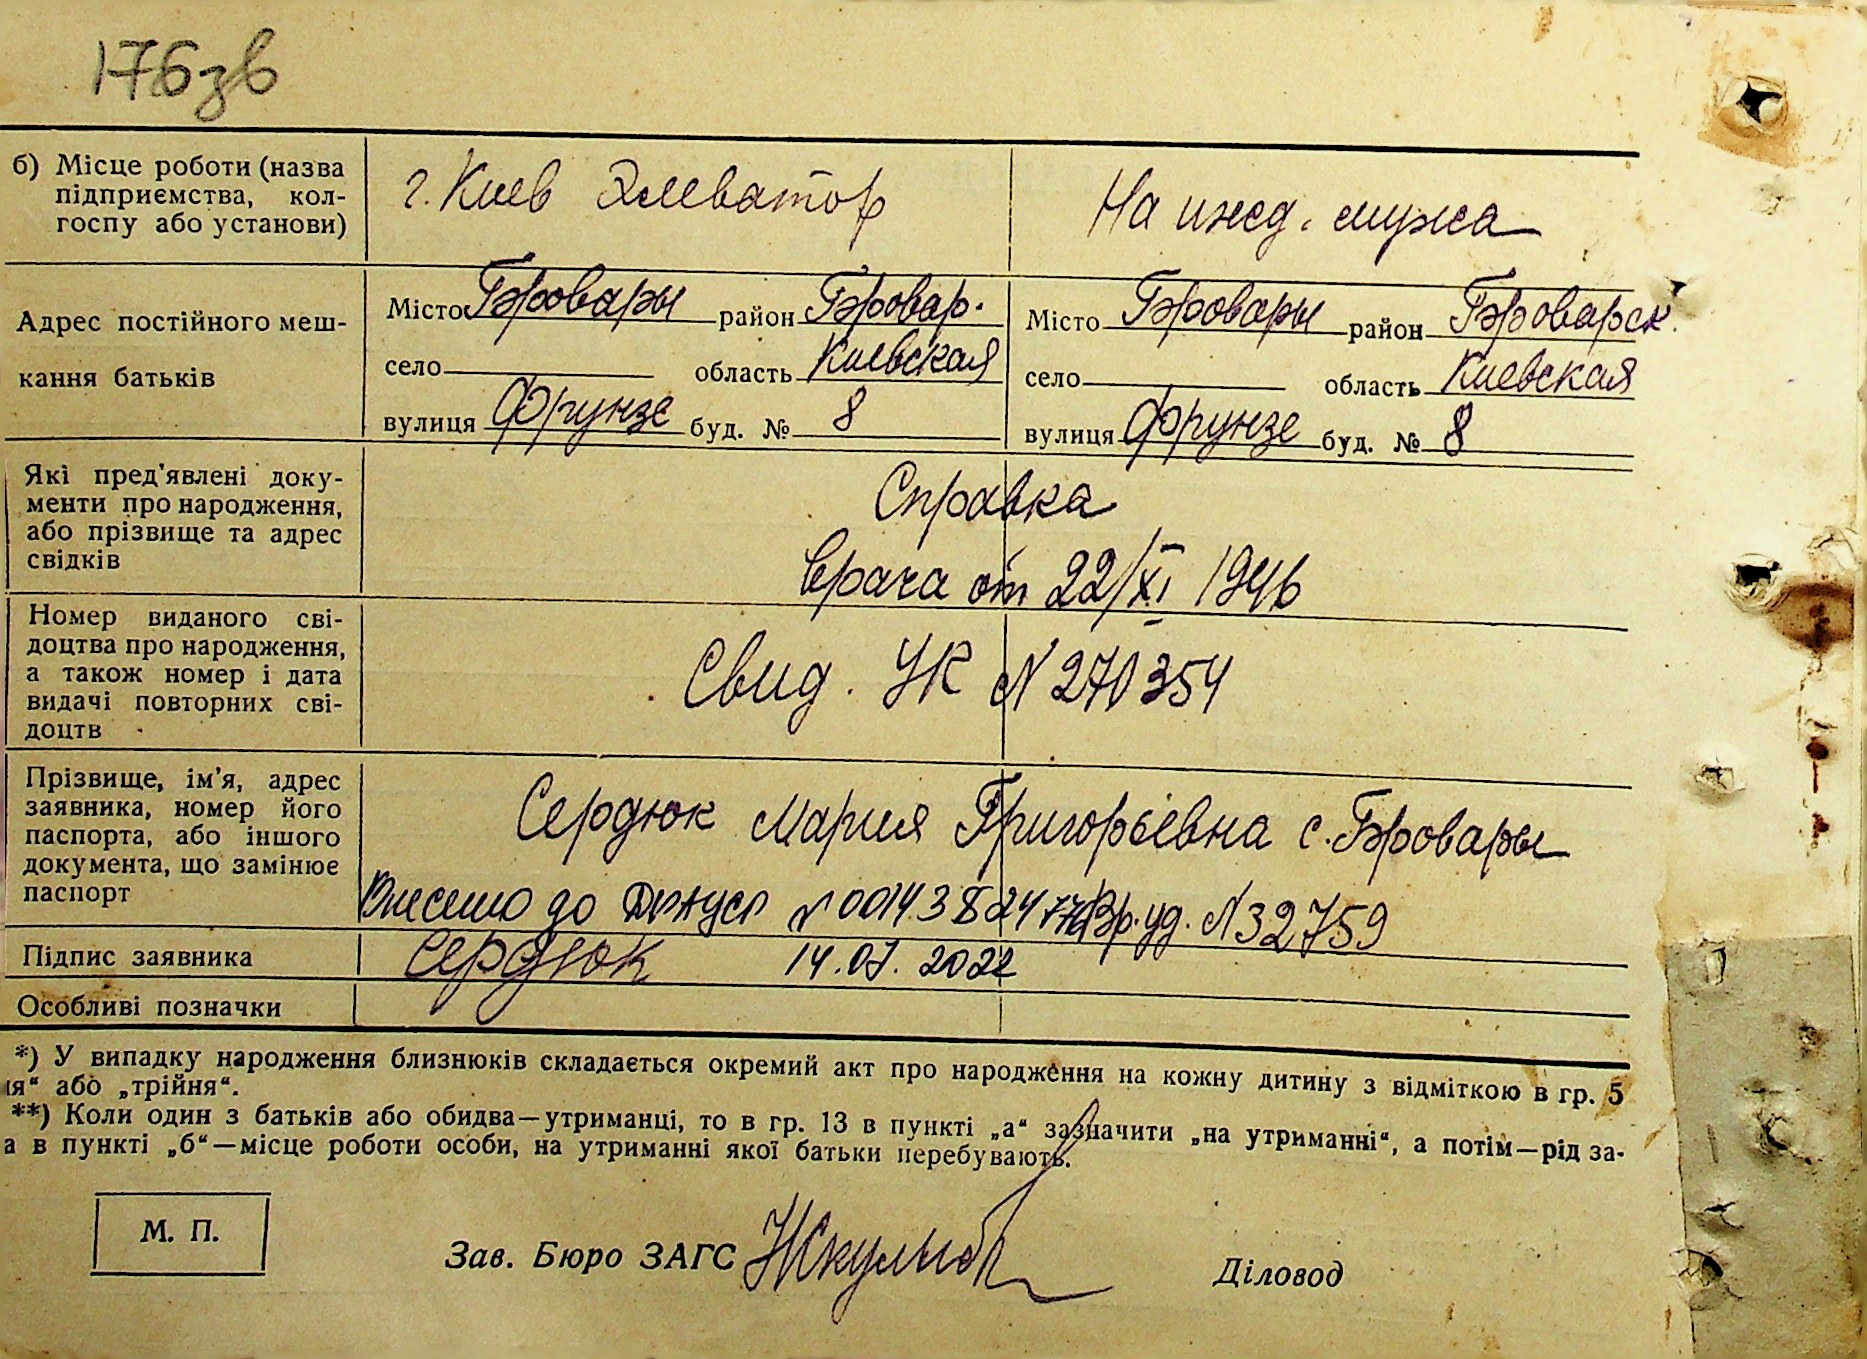 176зв
б) Місце роботи (назва підприємства, кол-госпу або установи)
г. Киев Элеватор
На ижд. мужа
Адрес постійного меш-кання батьків
Місто Бровары район Бровар.
село область Киевская
вулиця Фрунзе буд. № 8
Місто Бровары район Броварск.
село область Киевская
вулиця Фрунзе буд. № 8
Які пред'явлені доку-
менти про народження,
або прізвище та адрес
свідків
Справка
врача от 22/XI 1946
Номер виданого сві-
доцтва про народження,
а також номер і дата
видачі повторних сві-
доцтв
Свид. УК № 270354
Прізвище, ім'я, адрес
заявника, номер його
паспорта, або іншого
документа, що замінює
паспорт
Сердюк Мария Григорьевна с. Бровары
Внесено до № 00143824 уд. № 32759
Підпис заявника
Сердюк 14.07.2022
Особливі позначки
*) У випадку народження близнюків складається окремий акт про народження на кожну дитину з відміткою в гр. 5
ія“ або „трійня“.
**) Коли один з батьків або обидва—утриманці, то в гр. 13 в пункті „а“ зазначити „на утриманні“, а потім—рід за-
а в пункті „б“—місце роботи особи, на утриманні якої батьки перебувають.
М. П.
Зав. Бюро ЗАГС
Діловод